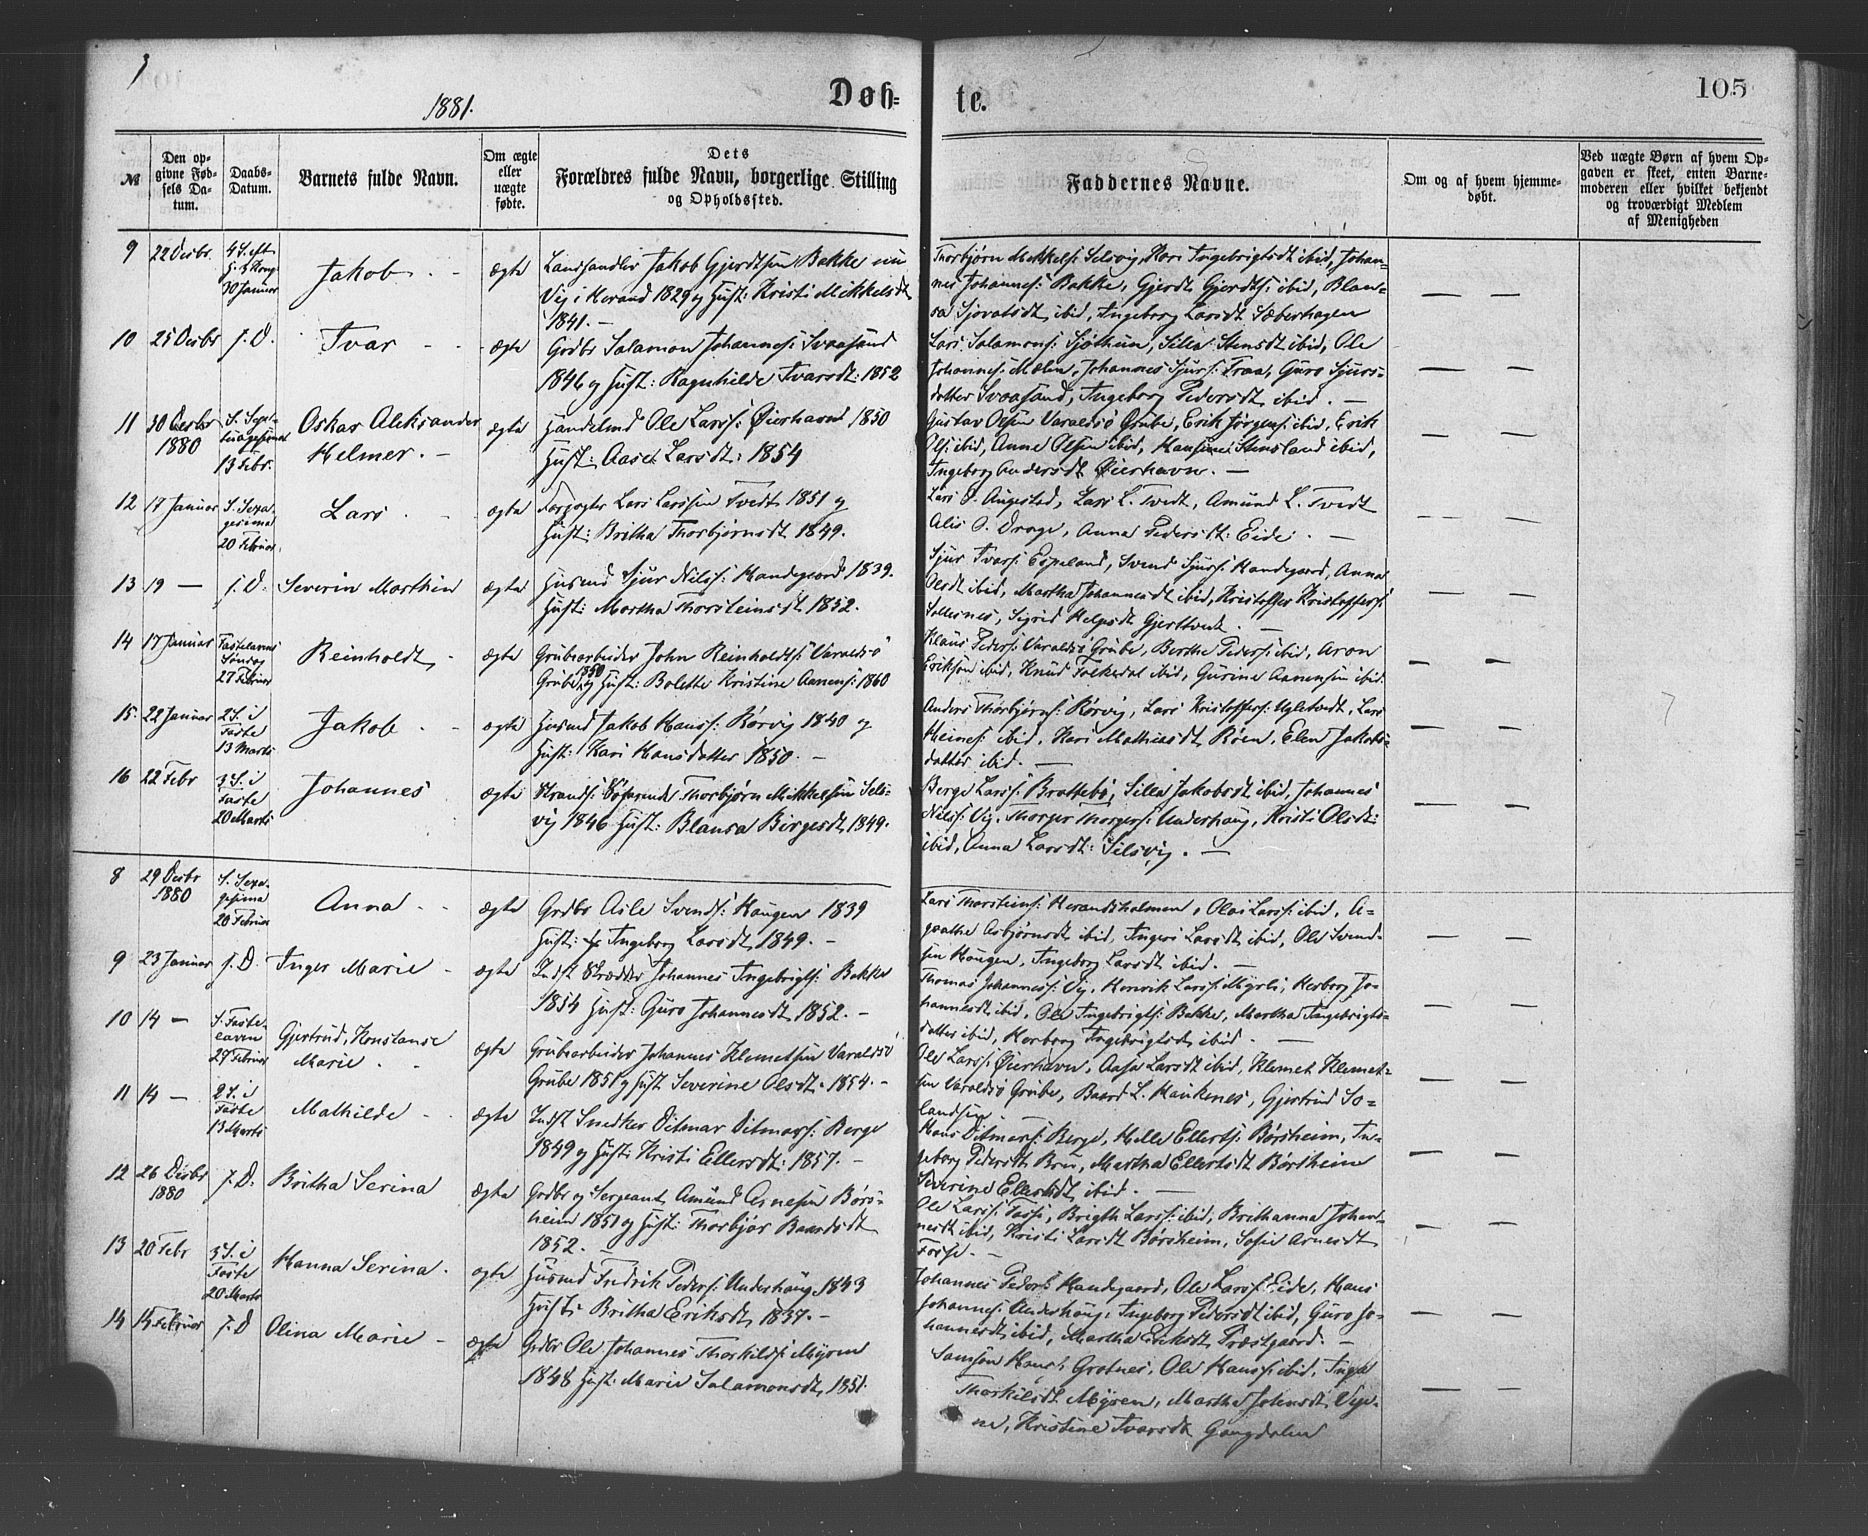 1881.
Døb=
te.
105
№
Den op-
givne Fød-
sels Da-
tum.
Daabs-
Datum.
Barnets fulde Navn.
Om ægte
eller
uægte
fødte.
Dets
Forældres fulde Navn, borgerlige Stilling
og Opholdssted.
Faddernes Navne.
Om og af hvem hjemme-
døbt.
Ved uægte Børn af hvem Op-
gaven er skeet, enten Barne-
moderen eller hvilket bekjendt
og troværdigt Medlem
af Menigheden
9 22 Decbr. 4 S. eft. H. 3 Kong. 30 Januar Jakob ægte
Landhandler Jakob Gjerdtsen Bakke nu
Vig i Herand 1829 og Hust: Kristi Mikkelsdt
1841. —
Thorbjørn Mikkels: Selsvig, Kari Ingebrigtsdt ibid, Johan-
nes Johannes: Bakke, Gjerdt Gjerdts: ibid, Blan-
sa Sjovatsdt ibid, Ingeborg Larsdt Sæberhagen
10 25 Decbr j. D. Ivar ægte
Grdbr Salamon Johannes: Svaasand
1846 og Hust: Ragnhilde Ivarsdt: 1852
Lars Salamons: Sjøthun, Silla Stensdt ibid, Ole
Johannes: Mælen, Johannes Sjurs: Traa, Guro Sjurs-
datter Svaasand, Ingeborg Pedersdt ibid. —
11 30 Decbr 1880 S. Septuagesima 13 Febr. Oskar Aleksander
Helmer. — ægte
Handelsmd Ole Larss: Øierhavn 1850
Hust: Aase Larsdt: 1854
Gustav Olsen Varaldsø Grube, Erik Jørgens: ibid, Erik
Ols: ibid, Anne Olsen ibid, Hansine Stensland ibid,
Ingeborg Andersdt Øierhavn. —
12 17 Januar S. Sexagesima 20 Februar Lars ægte
Lars Larssen Tvedt 1851 og
Hust: Britha Thorbjørnsdt 1849.
Lars O. Augestad, Lars L. Tvedt, Amund L. Tvedt
Alis O. Drage, Anna Pedersdt: Eide. —
13 19 — j. D. Severin Marthin ægte
Husmd Sjur Nilss: Handegaard 1839.
Hust: Martha Thorsteinsdt 1852.
Sjur Ivars: Espeland, Svend Sjurs: Handegaard, Anna
Olsdt ibid, Martha Johannesdt ibid, Kristoffer Kristoffers:
Solesnes, Sigrid Helgesdt Gjerstvedt. —
14 17 Januar Fastelavns Søndag 27 Februar Reinholdt ægte
Grubearbeider John Reinholdts: Varaldsø
Grube 1850 og Hust: Bolette Kristine Aanens: 1860
Klaus Peders: Varaldsø Grube, Berthe Peders: ibid, Aron
Eriksen ibid, Knud Folkedal ibid, Gurine Aanensen ibid.
15. 22 Januar 2 S. i Faste 13 Marts Jakob ægte
Husmd Jakob Hanss: Rørvig 1840 og
Hust: Kari Hansdatter 1850. —
Anders Thorbjørns: Rørvig, Lars Kristoffers: Ugletvedt, Lars
Heines: ibid, Kari Mathiasdt Røen, Elen Jakobs-
datter ibid. —
16 22 Febr 3 S. i Faste 20 Marts Johannes ægte
Strands: Søfarende Thorbjørn Mikkelsen Sels-
vig 1846 Hust: Blansa Birgesdt 1849.
Berge Larss: Brattebø, Silla Jakobsdt ibid, Johannes
Nilss: Vig, Thorger Thorgers: Underhaug, Kristi Olsdt:
ibid, Anna Larsdt: Selsvig. —
8 29 Decbr 1880 S. Sexagesima 20 Februar Anna ægte
Grdbr Asle Svends: Haugen 1839
Hust: Ingeborg Larsdt 1849. —
Lars Thorsteins: Herandsholmen, Olai Larss: ibid, A-
gathe Asbjørnsdt ibid, Ingeri Larsdt ibid, Ole Svend-
sen Haugen, Ingeborg Larsdt ibid. —
9 23 Januar j. D. Inger Marie ægte
Indst Skrædder Johannes Ingebrigts: Bakke
1854 Hust: Guro Johannesdt 1852. —
Thomas Johanness: Vig, Henrik Larss: Myrli, Herborg Jo-
hannesdt ibid, Ole Ingebrigts: Bakke, Martha Ingebrigts-
datter ibid, Herborg Ingebrigtsdt ibid. —
10 14 — S. Fastelaven 27 Februar Gjertrud, Konstanse
Marie ægte
Grubearbeider Johannes Klemetsen Varaldsø
Grube 1851 og Hust Severine Olsdt. 1854. —
Ole Larss: Øierhavn, Aasa Larsdt ibid, Klemet Klemet-
sen Varaldsø Grube, Baard L. Haukenes, Gjertrud So-
landsen. —
11 14 — 2 S. i Faste 13 Marts Mathilde ægte
Indst Snedker Ditmar Ditmars: Berge
1849 og Hust: Kristi Ellersdt: 1857. —
Hans Ditmars: Berge, Helle Ellerts: Børsheim, In-
geborg Pedersdt Bru, Martha Ellertsdt Børsheim
Severine Ellertsdt ibid. —
12 26 Decbr 1880 j. D. Britha Serina ægte
Grdbr og Sergeant Amund Arnesen Børs-
heim 1851 og Hust: Thorbjør Baardsdt
1852. —
Ole Larss: Fosse, Brigth Larss: ibid, Brithanna Johan-
nesdt ibid, Kristi Larsdt Børsheim, Sofie Arnesdt
Fosse. —
13 20 Febr 3 S. i Faste 20 Marts Hanna Serina. ægte
Husmd Fredrik Peders: Underhaug 1843
Hust: Britha Eriksdt 1837. —
Johannes Peders: Handegaard, Ole Larss: Eide, Hans
Johannes: Underhaug, Ingeborg Pedersdt ibid, Guro Jo-
hannesdt ibid, Martha Eriksdt Præstgaard. —
14 14 Februar j. D Olina Marie ægte
Grdbr Ole Johannes Thorkilds: Myren
1848 Hust: Marie Salamonsdt 1851.
Samson Hans: Grotnes, Ole Hanss: ibid, Inga
Thorkilsdt Myren, Martha Johnsdt Vige-
ne, Kristine Ivarsdt Gangdalen